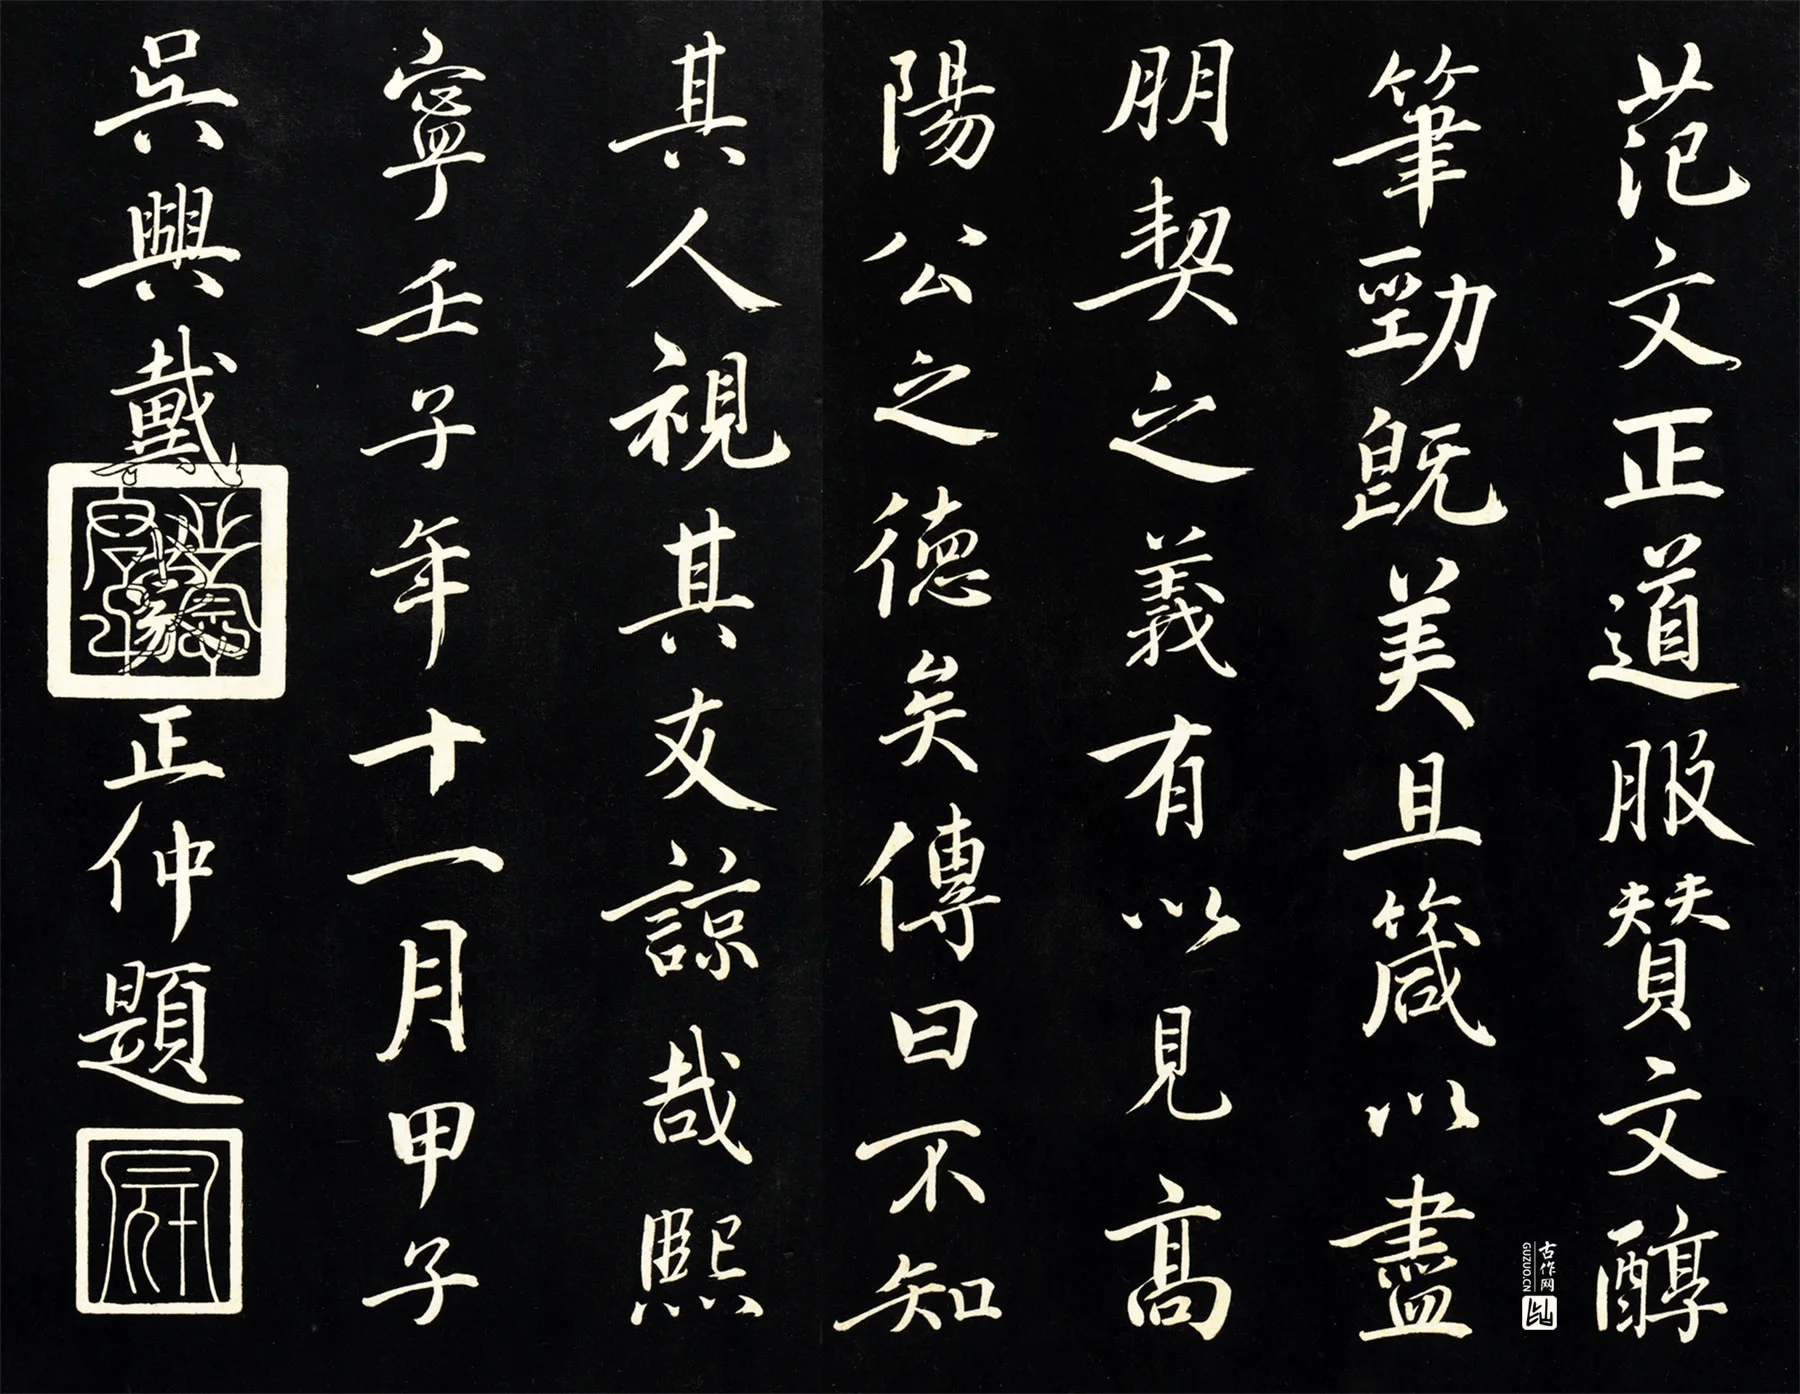 范文正道服贊文醇
筆勁既美且箴以盡
朋契之義有以見高
陽公之德矣傳曰不知
其人視其友諒哉熙
寧壬子年十一月甲子
吳興戴蒙正仲題
古作网
GUZUO.CN